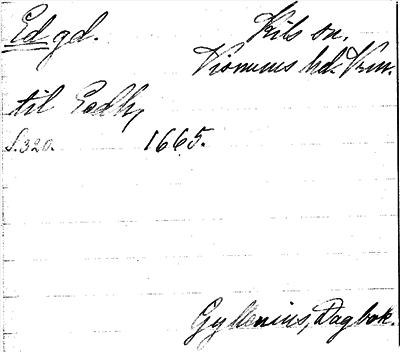 Ed gd.
Kils sn.
Visnums hd. Vrm.
til Eedh,
S. 320. 1665.
Gyllenius, Dagbok.